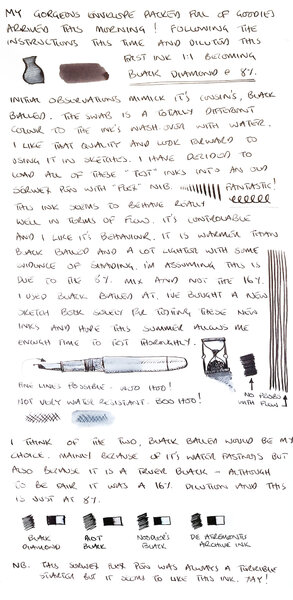 MY GORGEOUS ENVELOPE PACKED FULL OF GOODIES
ARRIVED THIS MORNING! FOLLOWING THE
INSTRUCTIONS THIS TIME AND DILUTED THIS
TEST INK 1:1 BECOMING
BLACK DIAMOND @ 8%.
INITIAL OBSERVATIONS MIMICK IT'S COUSIN'S, BLACK
BALLED. THE SWAB IS A TOTALLY DIFFERENT
COLOUR TO THE INK'S WASH OVER WITH WATER.
I LIKE THAT QUALITY AND LOOK FORWARD TO
USING IT IN SKETCHES. I HAVE DECIDED TO
LOAD ALL OF THESE 'TEST' INKS INTO AN OLD
SERWEX PEN WITH 'FLEX' NIB. FANTASTIC!
THIS INK SEEMS TO BEHAVE REALLY
WELL IN TERMS OF FLOW. IT'S CONTROLLABLE
AND I LIKE IT'S BEHAVIOUR. IT IS WARMER THAN
BLACK BALLED AND A LOT LIGHTER WITH SOME
EVIDENCE OF SHADING. I'M ASSUMING THIS IS
DUE TO THE 8% MIX AND NOT THE 16%
I USED BLACK BALLED AT. I'VE BOUGHT A NEW
SKETCH BOOK SOLELY FOR TESTING THESE NEW
INKS AND HOPE THIS SUMMER ALLOWS ME
ENOUGH TIME TO TEST THOROUGHLY.
FINE LINES POSSIBLE. WOO HOO!
NOT VERY WATER RESISTANT. BOO HOO!
NO PROBS
WITH FLOW
I THINK OF THE TWO, BLACK BALLED WOULD BE MY
CHOICE. MAINLY BECAUSE OF IT'S WATER FASTNESS BUT
ALSO BECAUSE IT IS A TRUER BLACK - ALTHOUGH
TO BE FAIR IT WAS A 16% DILUTION AND THIS
IS JUST AT 8%.
BLACK
DIAMOND
BLACK
NOODLER'S
BLACK
DE ATRAMENTIS
ARCHIVE INK
NB. THIS SERWEX FLEX PEN WAS ALWAYS A TERRIBLE
STARTER BUT IT SEEMS TO LIKE THIS INK. YAY!